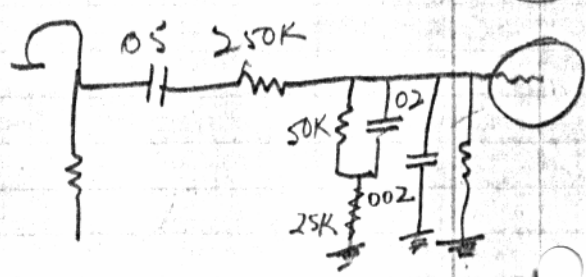 05 250K
50K 02
002
25K